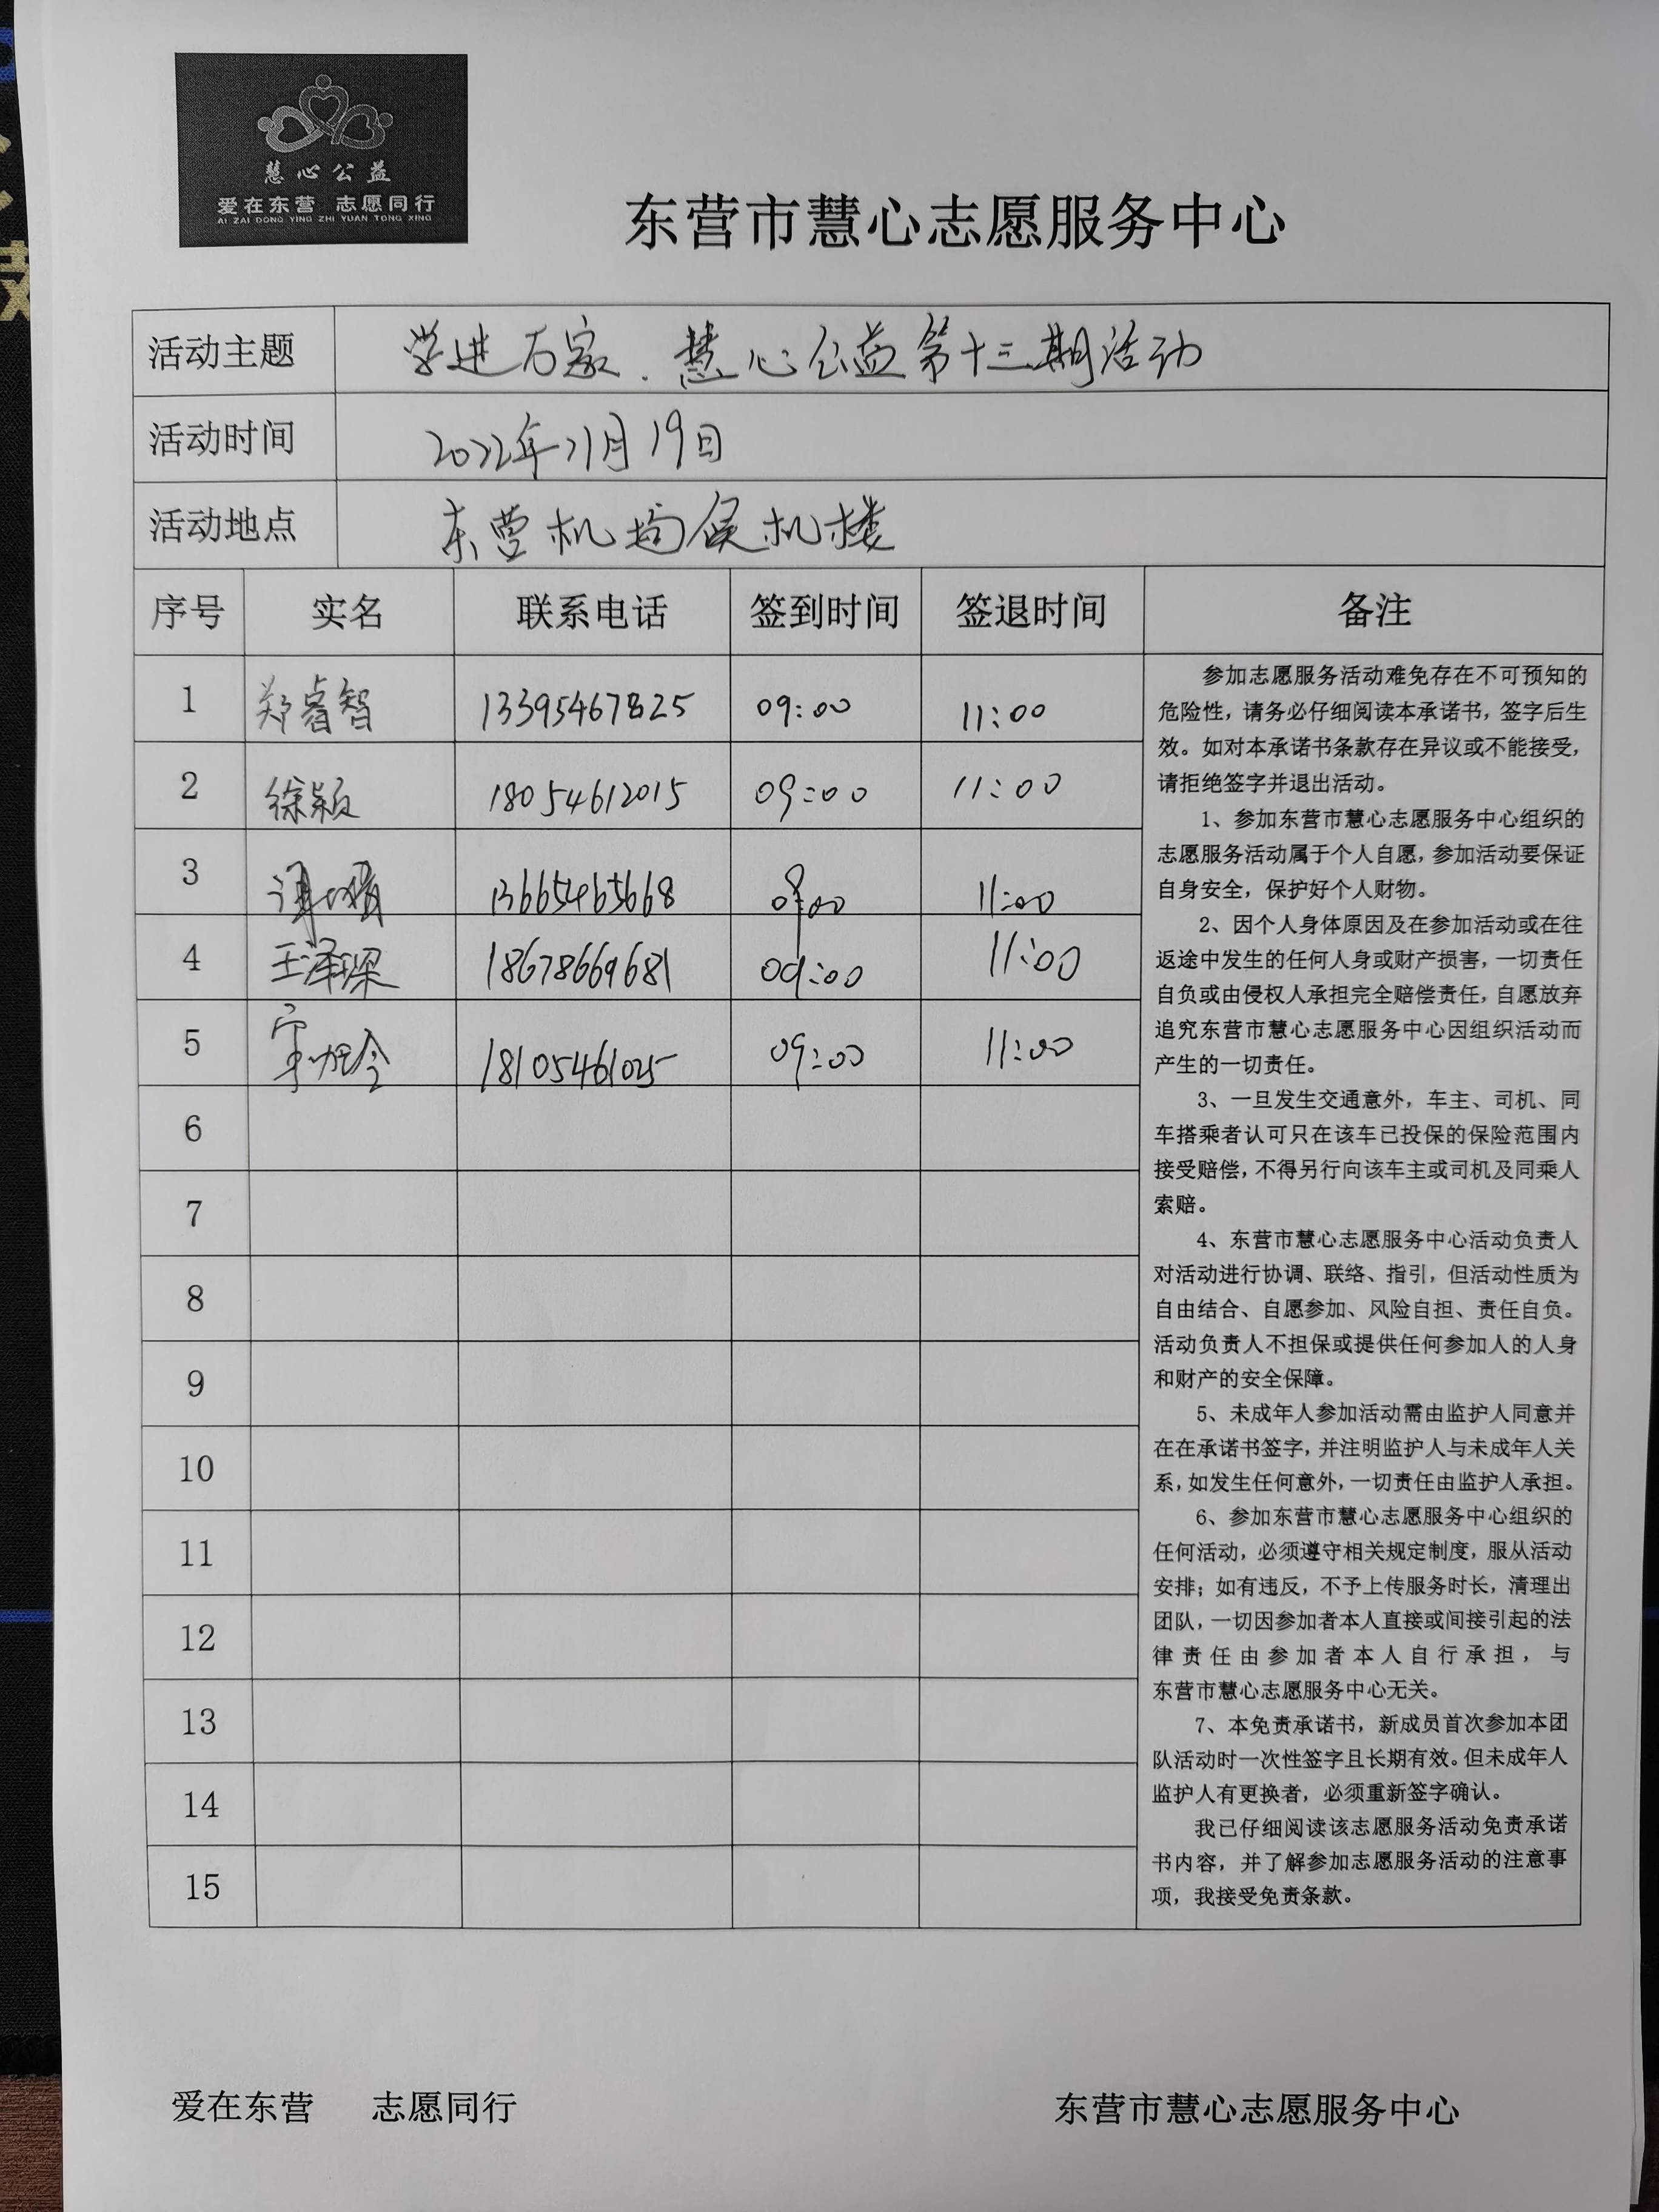 慧心公益
爱在东营 志愿同行
AI ZAI DONG YING ZHI YUAN TONG XING
东营市慧心志愿服务中心
活动主题 学进万家.慧心公益第十三期活动
活动时间 2022年11月19日
活动地点 东营机场侯机楼
序号 实名 联系电话 签到时间 签退时间 备注
1 郑睿智 13395467825 09:00 11:00
2 徐颖 18054612015 09:00 11:00
3 13665465668 09:00 11:00
4 王泽琛 18678669681 09:00 11:00
5 18105461025 09:00 11:00
6
7
8
9
10
11
12
13
14
15
参加志愿服务活动难免存在不可预知的
危险性，请务必仔细阅读本承诺书，签字后生
效。如对本承诺书条款存在异议或不能接受，
请拒绝签字并退出活动。
1、参加东营市慧心志愿服务中心组织的
志愿服务活动属于个人自愿，参加活动要保证
自身安全，保护好个人财物。
2、因个人身体原因及在参加活动或在往
返途中发生的任何人身或财产损害，一切责任
自负或由侵权人承担完全赔偿责任，自愿放弃
追究东营市慧心志愿服务中心因组织活动而
产生的一切责任。
3、一旦发生交通意外，车主、司机、同
车搭乘者认可只在该车已投保的保险范围内
接受赔偿，不得另行向该车主或司机及同乘人
索赔。
4、东营市慧心志愿服务中心活动负责人
对活动进行协调、联络、指引，但活动性质为
自由结合、自愿参加、风险自担、责任自负。
活动负责人不担保或提供任何参加人的人身
和财产的安全保障。
5、未成年人参加活动需由监护人同意并
在在承诺书签字，并注明监护人与未成年人关
系，如发生任何意外，一切责任由监护人承担。
6、参加东营市慧心志愿服务中心组织的
任何活动，必须遵守相关规定制度，服从活动
安排；如有违反，不予上传服务时长，清理出
团队，一切因参加者本人直接或间接引起的法
律责任由参加者本人自行承担，与
东营市慧心志愿服务中心无关。
7、本免责承诺书，新成员首次参加本团
队活动时一次性签字且长期有效。但未成年人
监护人有更换者，必须重新签字确认。
我已仔细阅读该志愿服务活动免责承诺
书内容，并了解参加志愿服务活动的注意事
项，我接受免责条款。
爱在东营 志愿同行 东营市慧心志愿服务中心